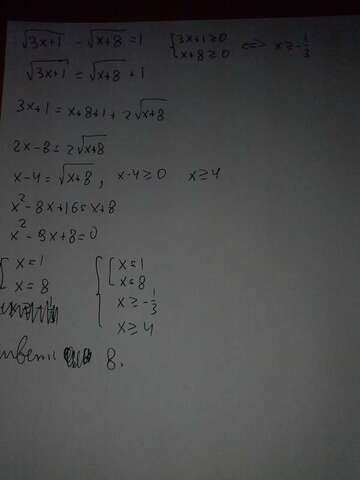 √3x+1 - √x+8 = 1 { 3x+1≥0 x+8≥0 <=> x≥-1/3
√3x+1 = √x+8 + 1
3x+1 = x+8+1 + 2√x+8
2x-8 = 2√x+8
x-4 = √x+8, x-4≥0 x≥4
x²-8x+16=x+8
x²-9x+8=0
[ x=1 { [ x=1
x=8 x=8
x≥-1/3
x≥4
8.